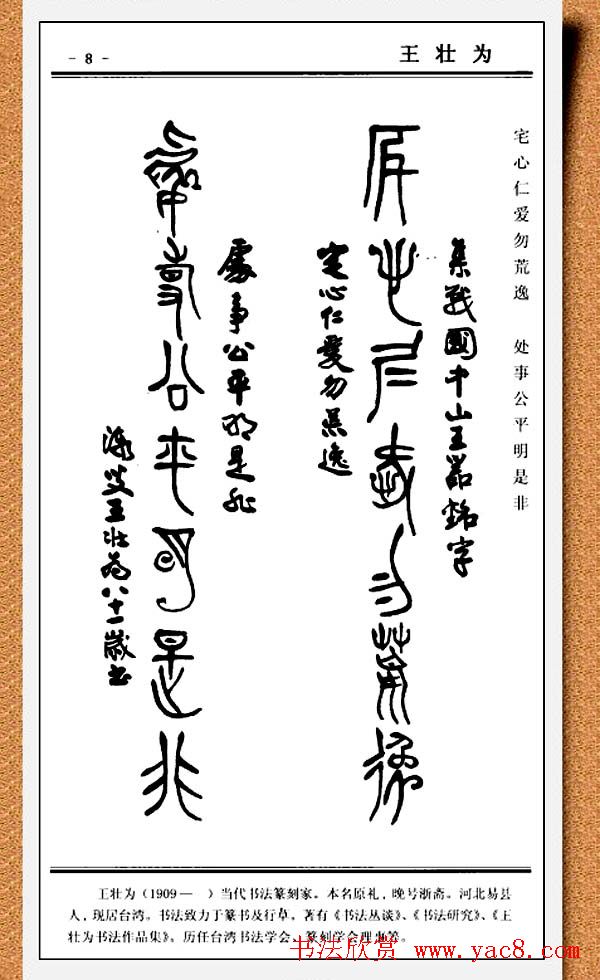 - 8 -
王壮为
宅心仁爱勿荒逸 处事公平明是非
集戰國中山王器銘字
宅心仁愛勿荒逸
宅心仁愛勿荒逸
處事公平明是非
處事公平明是非
漸叟王壯為八十一歲書
王壮为（1909— ）当代书法篆刻家。本名原礼，晚号浙斋。河北易县
人，现居台湾。书法致力于篆书及行草。著有《书法丛谈》、《书法研究》、《王
壮为书法作品集》。历任台湾书法学会、篆刻学会理事等。
书法欣赏 www.yac8.com